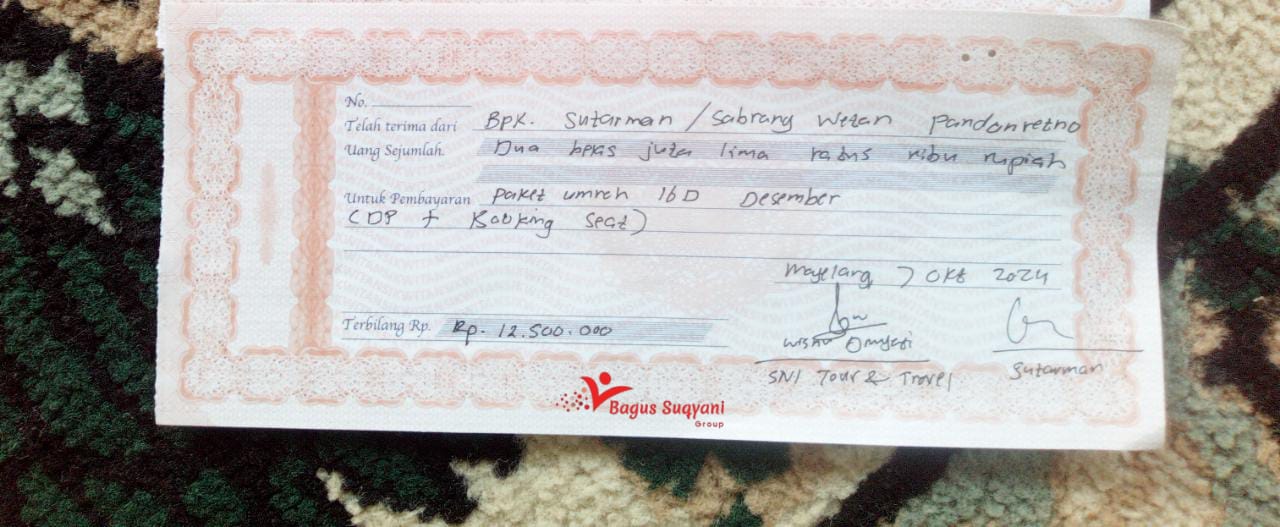 No.
Telah terima dari Bpk. Sutarman / Sabrang Wetan Pandanretno
Uang Sejumlah. Dua belas juta lima ratus ribu rupiah
Untuk Pembayaran paket umroh 16 D Desember
(DP + Booking Seat)
Magelang 7 Okt 2024
Terbilang Rp. Rp. 12.500.000
Wisnu
SNI Tour & Travel
Sutarman
Bagus Suqyani
Group